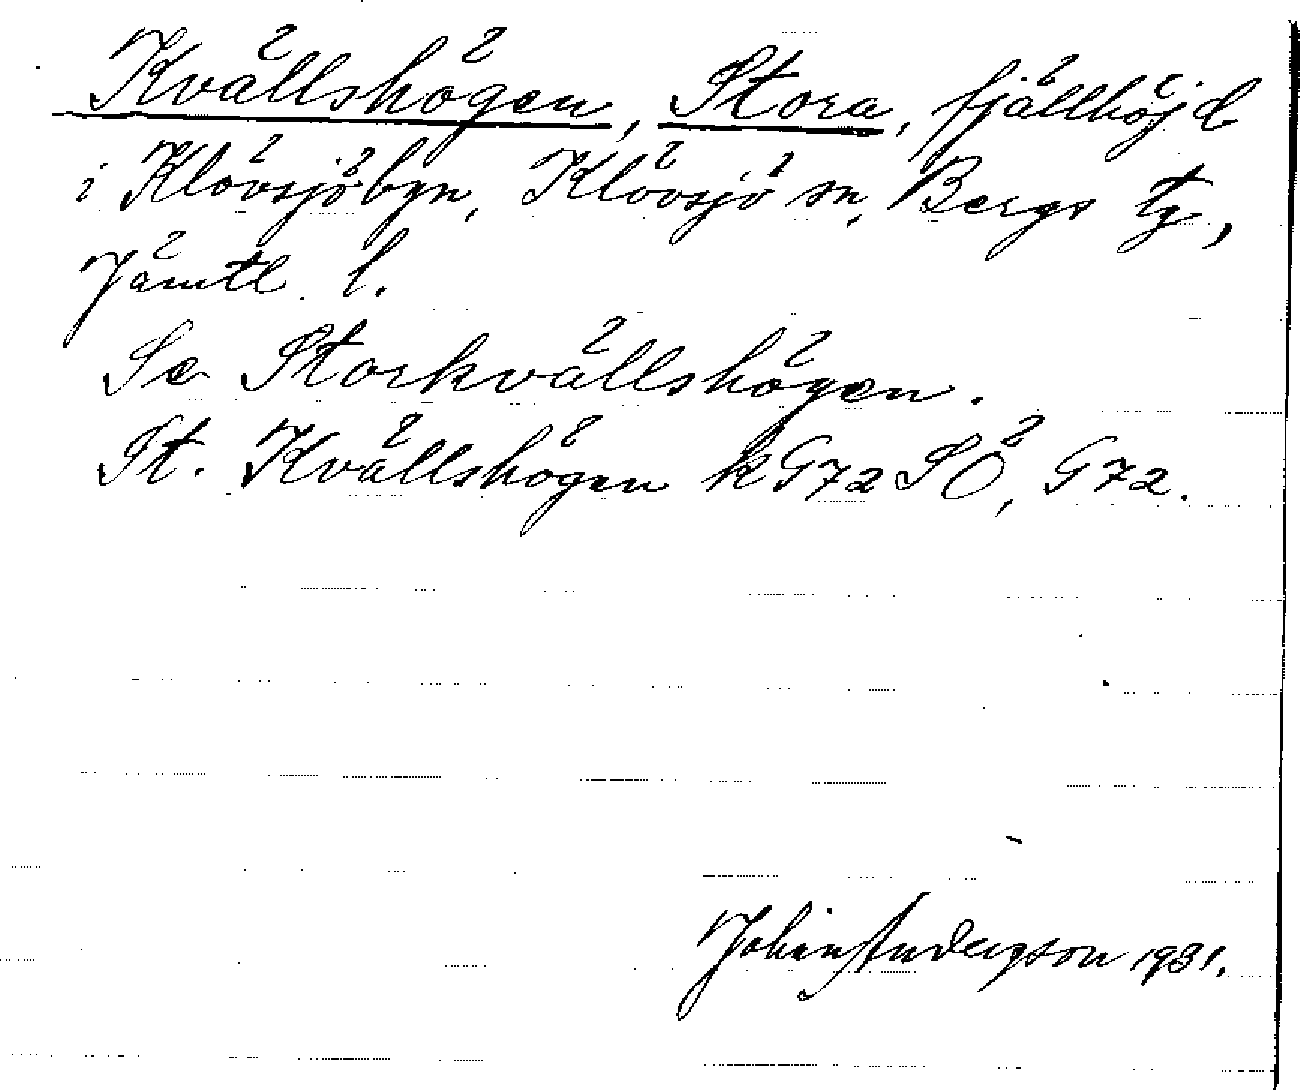 Kvällshögen, Stora, fjällhöjd
i Klövsjöbyn, Klövsjö sn, Bergs tg,
Jämtl. l.
Se Storkvällshögen.
St. Kvällshögen k G72 SÖ, G72.
Johan Anderson 1931.